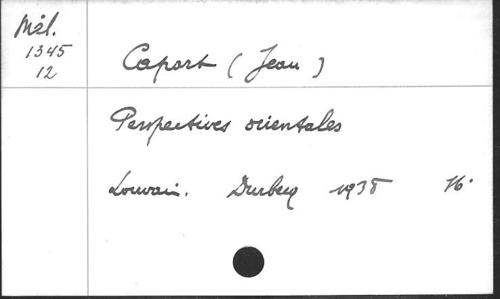 Mél.
1345
12
Caport (Jean)
Perspectives orientales
Louvain. Durbecq 1938 16°